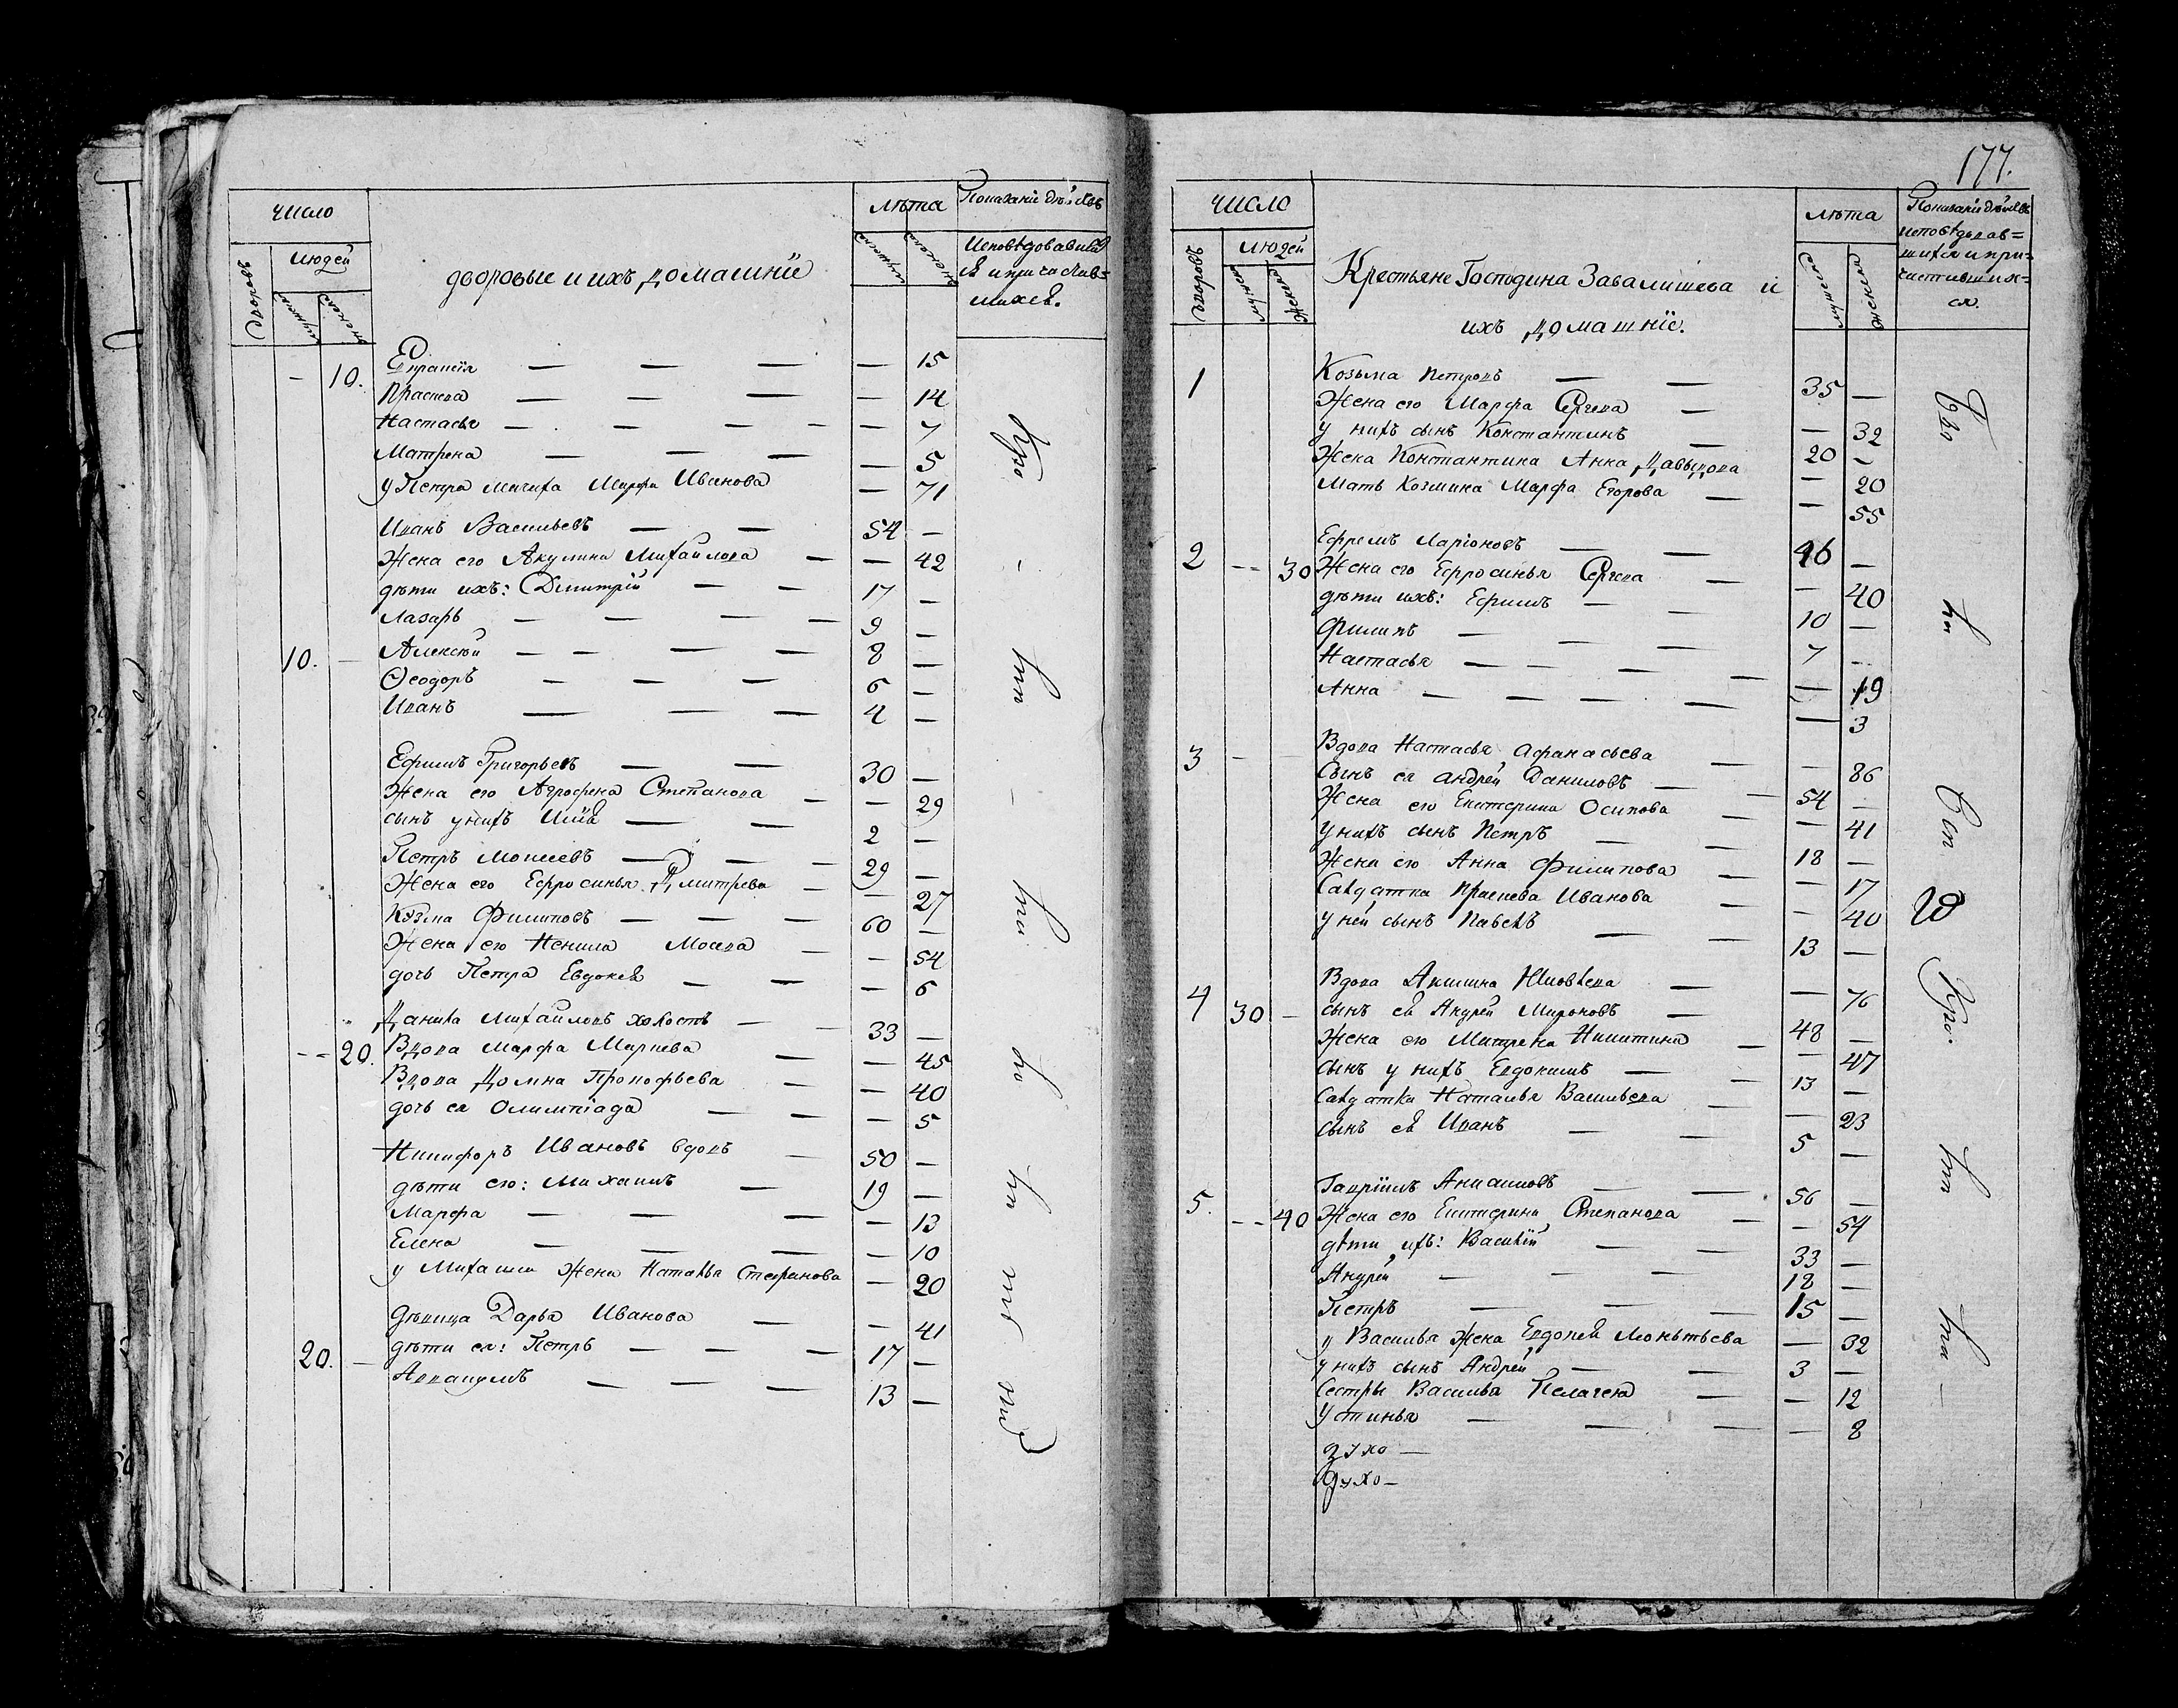 число
лѣта
Показаніе дѣйствъ
людей
дворовъ
мужеска
женска
дворовые и ихъ домашніе
мужеска
женска
исповѣдовавших
ся и причастив=
шихся.
— 10. Евпраксія — — — — 15
Праскева — — — — 14
Настасья — — — — — 7
Матрена — — — — 5
у Петра мачиха Марфа Иванова — 71
Иванъ Васильевъ — — 54 —
Жена его Акулина Михайлова — — 42
дѣти ихъ: Димитрій — — 17 —
Лазарь — — — — 9 —
10. — Алексѣй — — — — 8 —
Ѳеодоръ — — — 6 —
Иванъ — — — 4 —
Ефимъ Григорьевъ — — 30 —
Жена его Агрофена Степанова — — 29
сынъ у нихъ Илія — — 2 —
Петръ Моисеевъ — — — 29 —
Жена его Ефросинья Дмитрева — — 27
Козма Филиповъ — — — 60 —
Жена его Ненила — — 54
дочь Петра Евдокея — — — 6
Данила Михайловъ холостъ — — 33 —
-- 20. Вдова Марфа — — 45
Вдова Домна Прокофьева — — 40
дочь ея Олимпіада — — — 5
Никифоръ Ивановъ вдовъ — 50 —
дѣти его: Михаилъ — 19 —
Марфа — — — — 13
Елена — — — — 10
у Михаила жена Наталья Стефанова — 20
Дѣвица Дарья Иванова — — 41
20. — дѣти ея: Петръ — — — 17 —
— — — 13 —
177.
число
лѣта
Показаніе дѣйствъ
исповѣдовав=
шихся и при=
частивших=
ся.
людей
дворовъ
мужеска
женска
Крестьяне Господина Завалишева и
ихъ домашніе.
мужеска
женска
1 Козьма Петровъ — — 35 —
Жена его Марфа Сергева — — 32
у нихъ сынъ Константинъ — 20 —
Жена Константина Анна Давыдова — 20
Мать Козмина Марфа Егорова — — 55
2 Ефремъ Ларіоновъ — — 46 —
-- 30 Жена его Ефросинья Сергева — — 40
дѣти ихъ: Ефимъ — — 10 —
Филипъ — — 7 —
Настасья — — — — — 19
Анна — — — — — 3
3 — Вдова Настасья Афанасьева — — 86
Сынъ ея Андрей Даниловъ — — 54 —
Жена его Екатерина Осипова — — 41
У нихъ сынъ Петръ — — 18 —
Жена его Анна Филипова — — 17
Салдатка Праскева Иванова — — 40
у ней сынъ Павелъ — — 13 —
4 Вдова Акилина — — 76
30 — сынъ ея Андрей Мироновъ — 48 —
Жена его Матрена Никитина — — 47
сынъ у нихъ Евдокимъ — — 13 —
Салдатка Наталья Васильева — — 23
сынъ ея Иванъ — — 5 —
5. Гаврилъ — — 56 —
-- 40 Жена его Екатерина Степанова — — 54
дѣти ихъ: Василій — — 33 —
Андрей — — — 18 —
Петръ — — — 15 —
у Василья жена Евдокея — 32
у нихъ сынъ Андрей — — 3 —
Сестры Василья Пелагея — — 12
Устинья — — — — 8
духо —
духо —